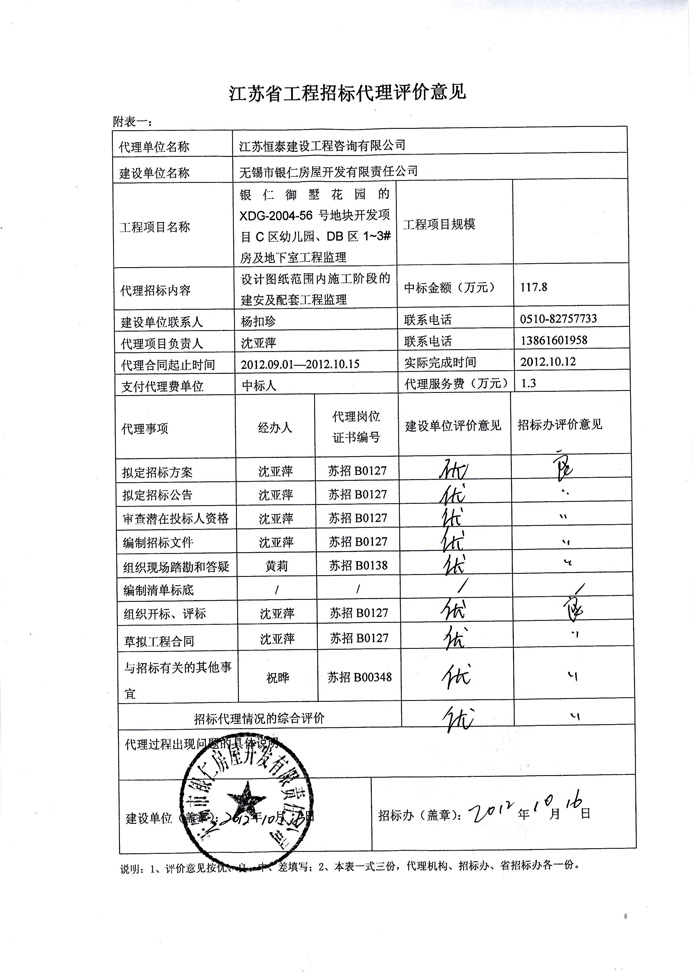 江苏省工程招标代理评价意见
附表一:
代理单位名称 江苏恒泰建设工程咨询有限公司
建设单位名称 无锡市银仁房屋开发有限责任公司
工程项目名称 银仁御墅花园的
XDG-2004-56 号地块开发项
目 C 区幼儿园、DB 区 1~3#
房及地下室工程监理
工程项目规模
代理招标内容 设计图纸范围内施工阶段的
建安及配套工程监理
中标金额（万元） 117.8
建设单位联系人 杨扣珍 联系电话 0510-82757733
代理项目负责人 沈亚萍 联系电话 13861601958
代理合同起止时间 2012.09.01—2012.10.15 实际完成时间 2012.10.12
支付代理费单位 中标人 代理服务费（万元） 1.3
代理事项 经办人 代理岗位
证书编号
建设单位评价意见 招标办评价意见
拟定招标方案 沈亚萍 苏招 B0127 优 良
拟定招标公告 沈亚萍 苏招 B0127 优 〃
审查潜在投标人资格 沈亚萍 苏招 B0127 优 〃
编制招标文件 沈亚萍 苏招 B0127 优 〃
组织现场踏勘和答疑 黄莉 苏招 B0138 优 〃
编制清单标底 / / / /
组织开标、评标 沈亚萍 苏招 B0127 优 良
草拟工程合同 沈亚萍 苏招 B0127 优 〃
与招标有关的其他事
宜
祝晔 苏招 B00348 优 〃
招标代理情况的综合评价 优 〃
代理过程出现问题的具体说明
无锡市银仁房屋开发有限责任公司
建设单位（盖章）: 2012年10月 日
招标办（盖章）: 2012 年 10 月 16 日
说明: 1、评价意见按优、良、中、差填写; 2、本表一式三份，代理机构、招标办、省招标办各一份。